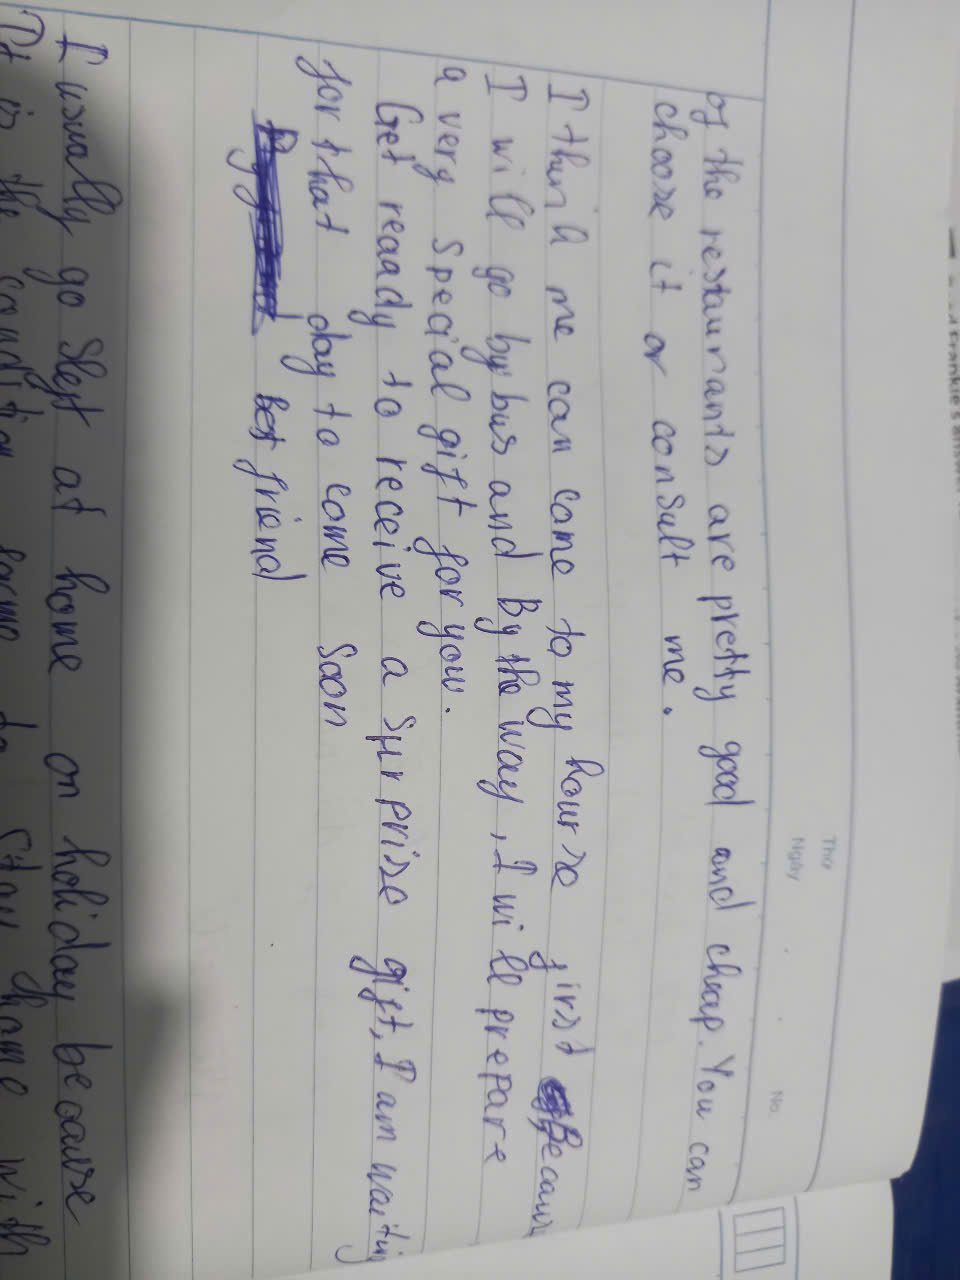 Thứ
Ngày
No.
of the restaurants are pretty good and cheap. You can
choose it or consult me.
I think me can come to my hourse first Because
I will go by bus and By the way, I will prepare
a very special gift for you.
Get reaady to receive a surprise gift, I am waiting
for that day to come soon
best friend
I usually go slept at home on holiday because
It is the condition home to stay home with